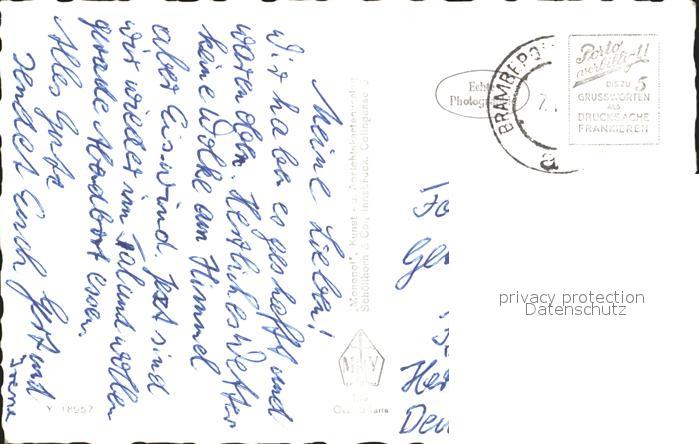 Meine Lieben!
Wir haben es geschafft und
waren oben. Herrliches Wetter
keine Wolke am Himmel
aber Eiswind. Jetzt sind
wir wieder im Tal und wollen
gerade Abendbrot essen.
Alles Gute
sendet Euch Gert und
Irene
"Monopol", Kunst- u. Ansichtskartenverlag
Schöllhorn & Co., Innsbruck,
Y 18957
Echte
Photographie
BRAMBERG
a
Porto
verbilligt!
BIS ZU 5
GRUSSWORTEN
ALS
DRUCKSACHE
FRANKIEREN
privacy protection
Datenschutz